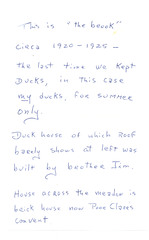 This is "the brook"
circa 1920-1925 -
the last time we kept
Ducks, in this case
my ducks, for summer
only.
Duck house of which Roof
barely shows at left was
built by brother Jim.
House across the meadow is
brick house now Poor Clares
convent